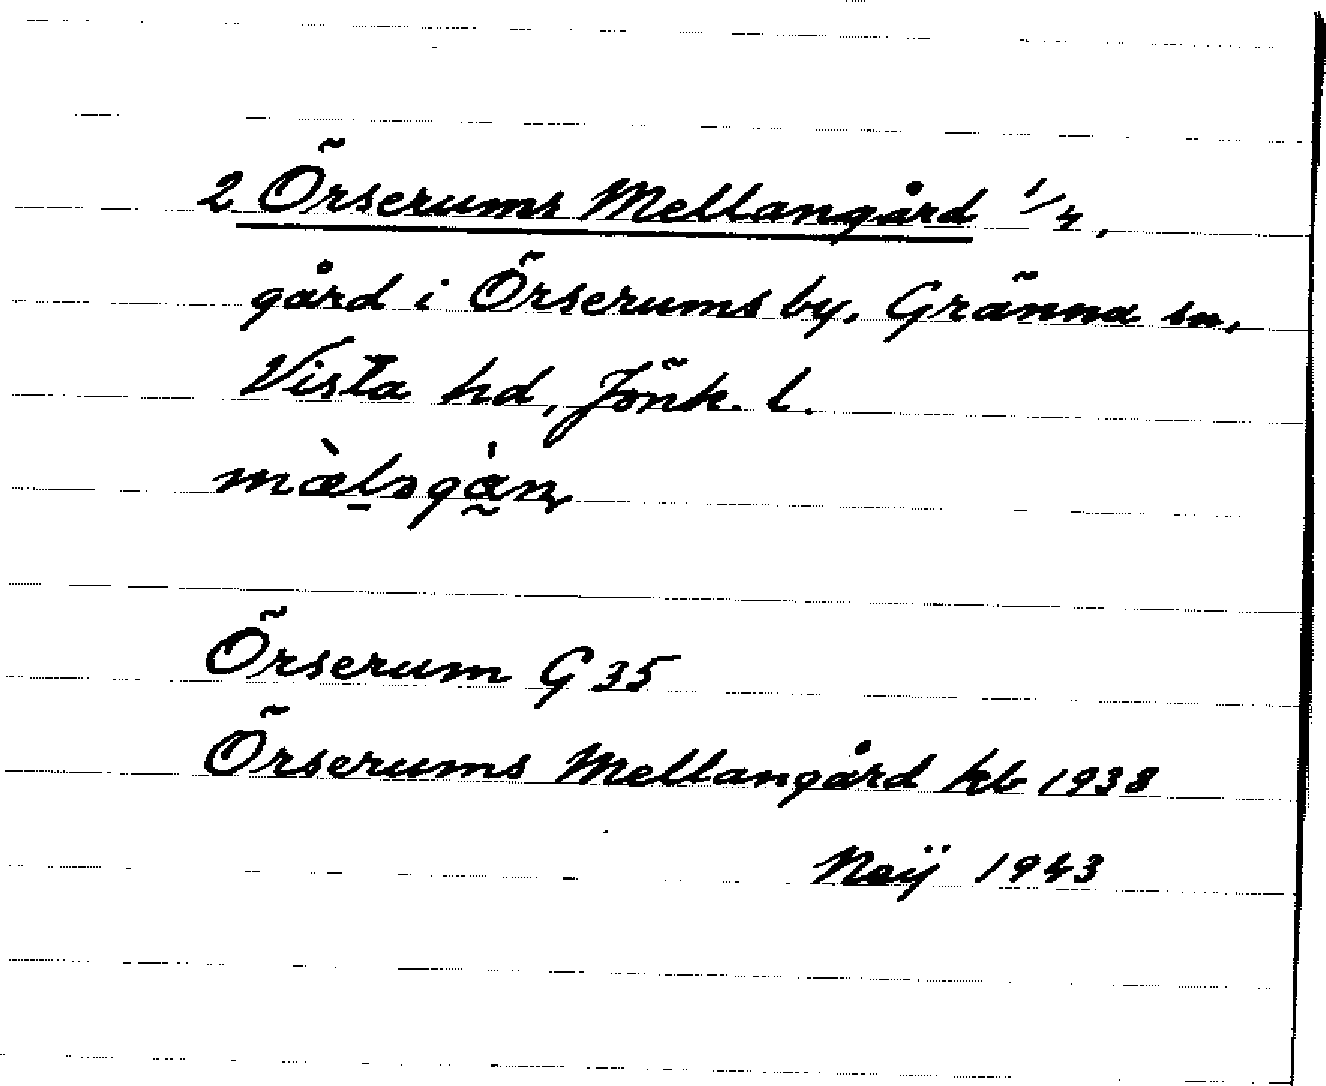 2 Örserums Mellangård 1/4,
gård i Örserums by, Gränna sn,
Vista hd, Jönk. l.
Örserum G 35
Örserums Mellangård kb 1938
1943